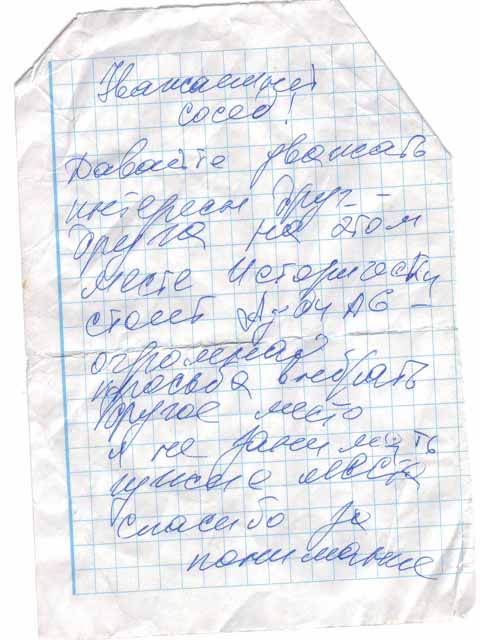 Уважаемый
сосед!
Давайте уважать
интересы друг-
друга на этом
месте Исторически
стоит Ауди А6 -
огромная
просьба выбрать
другое место
и не занимать
чужого места
спасибо за
понимание